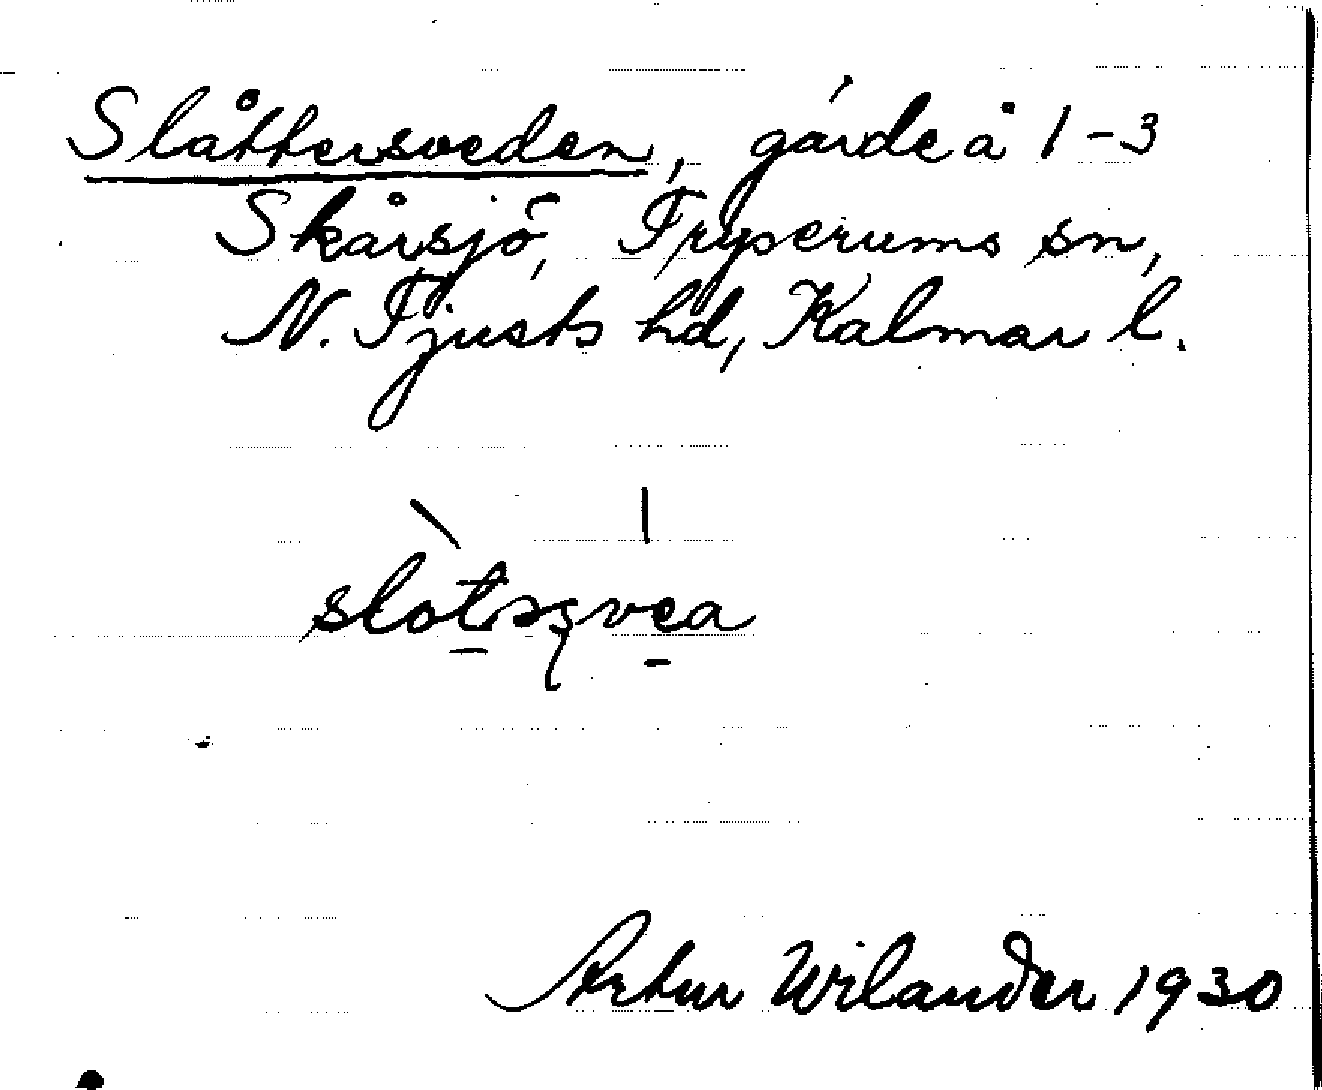 Slåttersveden, gärde å 1-3
Skårsjö, Tryserums sn,
N. Tjusts hd, Kalmar l.
slotsʒvea
Artur Wilander 1930